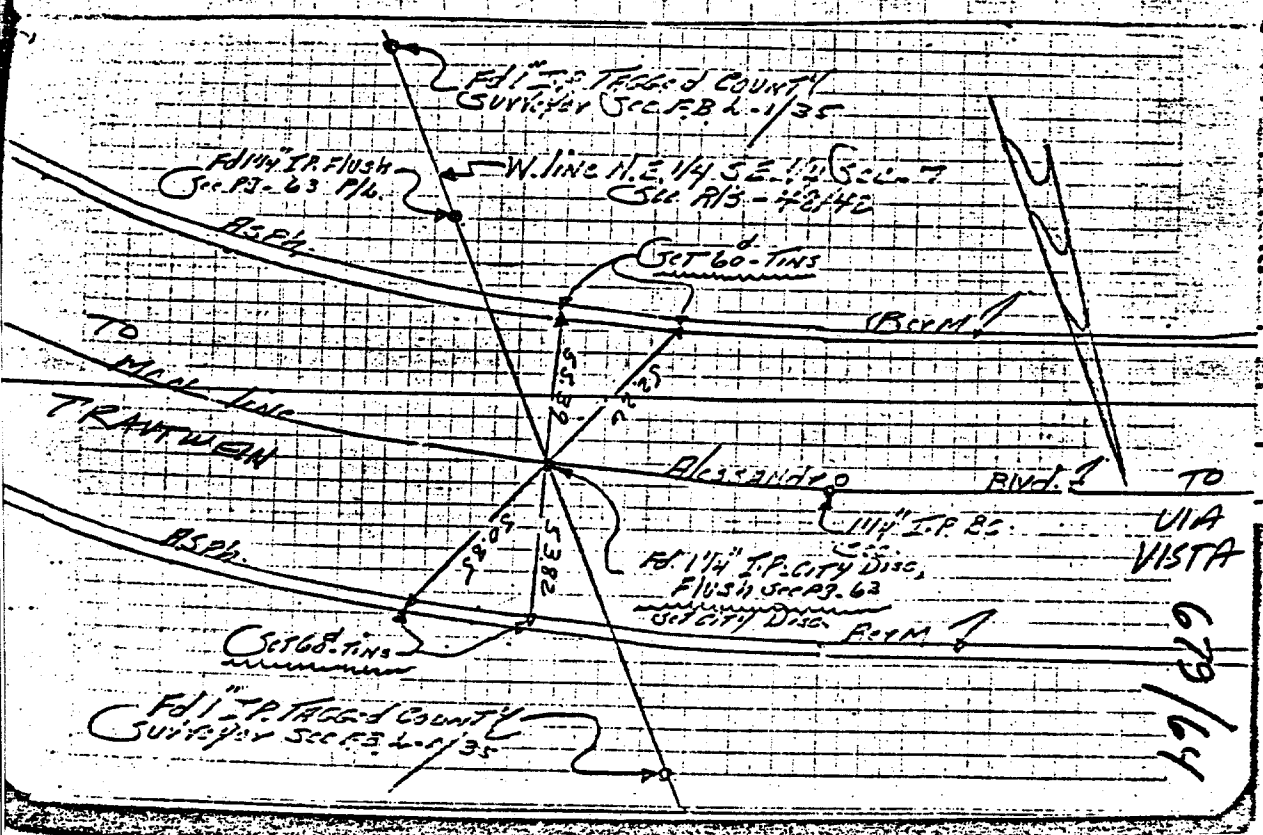 Fd 1" I.P. TAGGed COUNTY
Surveyor See F.B L-1/35
Fd 1 1/4" I.P. Flush
See PJ- 63 P/L.
W. line N.E. 1/4 S.E. 1/4 Sec. 7
See R/S - 42/42
ASPh.
SET 60d TINS
Berm
TO
Mon line
TRAUTWEIN
55.39
52.26
Alessandro
Blvd.
TO
VIA
VISTA
1 1/4" I.P. EC
50.85
53.82
ASPh.
Fd. 1 1/4" I.P. CITY DISC,
Flush See PJ. 63
Set CITY Disc
Berm
Set 60d TINS
Fd 1" I.P. TAGGed COUNTY
Surveyor See F.B L-1/35
679/64